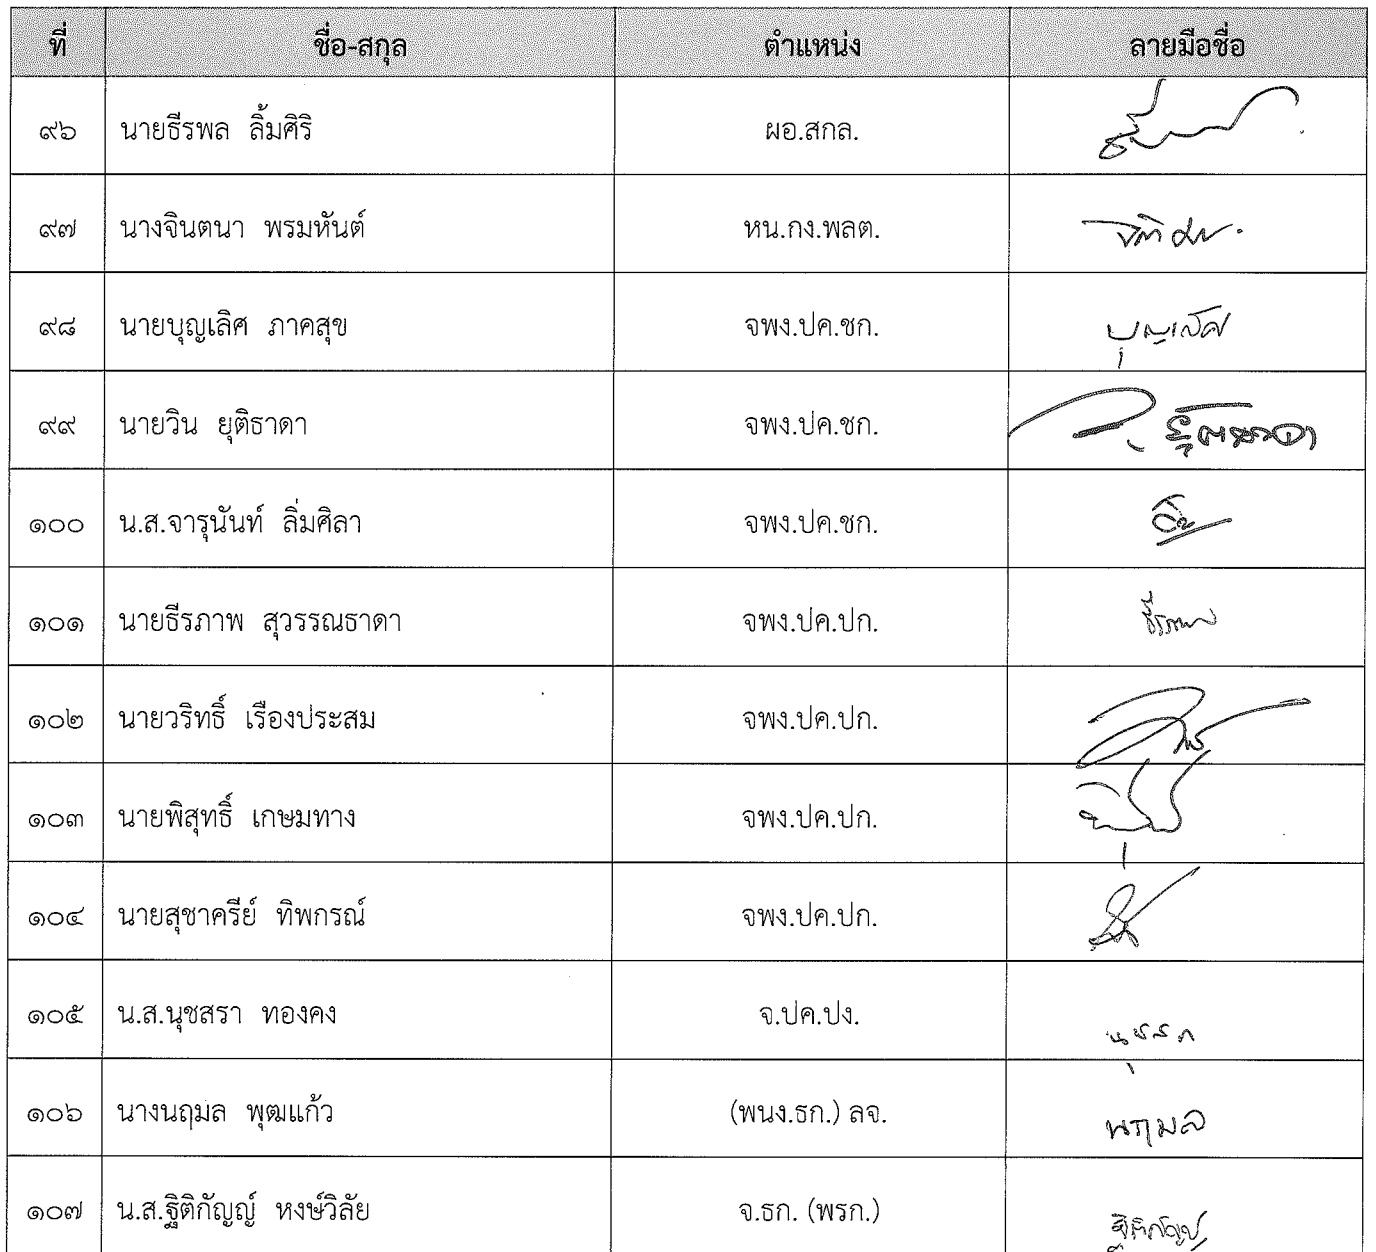 ที่ ชื่อ-สกุล ตำแหน่ง ลายมือชื่อ
๙๖ นายธีรพล ลิ้มศิริ ผอ.สกล.
๙๗ นางจินตนา พรมหันต์ หน.กง.พลต.
๙๘ นายบุญเลิศ ภาคสุข จพง.ปค.ชก. บุญเลิศ
๙๙ นายวิน ยุติธาดา จพง.ปค.ชก.
๑๐๐ น.ส.จารุนันท์ ลิ่มศิลา จพง.ปค.ชก.
๑๐๑ นายธีรภาพ สุวรรณธาดา จพง.ปค.ปก. ธีรภาพ
๑๐๒ นายวริทธิ์ เรืองประสม จพง.ปค.ปก.
๑๐๓ นายพิสุทธิ์ เกษมทาง จพง.ปค.ปก.
๑๐๔ นายสุชาครีย์ ทิพกรณ์ จพง.ปค.ปก.
๑๐๕ น.ส.นุชสรา ทองคง จ.ปค.ปง. นุชสรา
๑๐๖ นางนฤมล พุฒแก้ว (พนง.ธก.) ลจ. นฤมล
๑๐๗ น.ส.ฐิติกัญญ์ หงษ์วิลัย จ.ธก. (พรก.) ฐิติกัญญ์